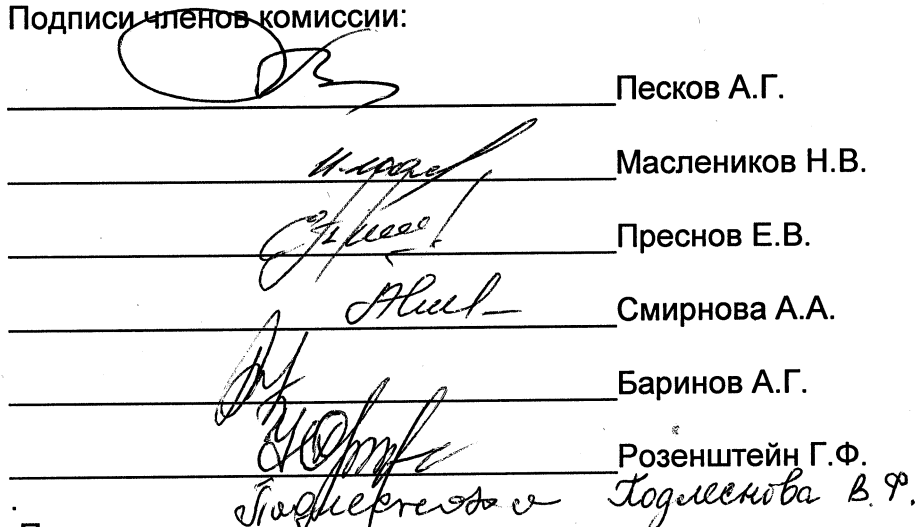 Подписи членов комиссии:
Песков А.Г.
Маслеников Н.В.
Преснов Е.В.
Смирнова А.А.
Баринов А.Г.
Розенштейн Г.Ф.
Подлеснова В.Ф.